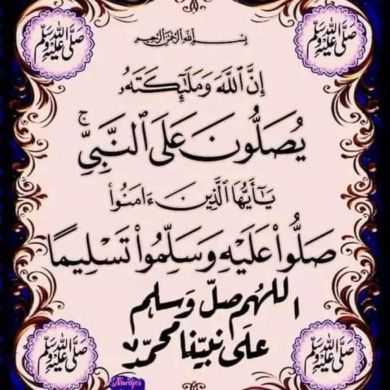 صلى الله عليه وسلم
صلى الله عليه وسلم
بسم الله الرحمن الرحيم
إِنَّ ٱللَّهَ وَمَلَٰٓئِكَتَهُۥ
يُصَلُّونَ عَلَى ٱلنَّبِيِّۚ
يَٰٓأَيُّهَا ٱلَّذِينَ ءَامَنُوا۟
صَلُّوا۟ عَلَيْهِ وَسَلِّمُوا۟ تَسْلِيمًا
اللهم صلّ وسلم
على نبيّنا محمدّ
صلى الله عليه وسلم
صلى الله عليه وسلم